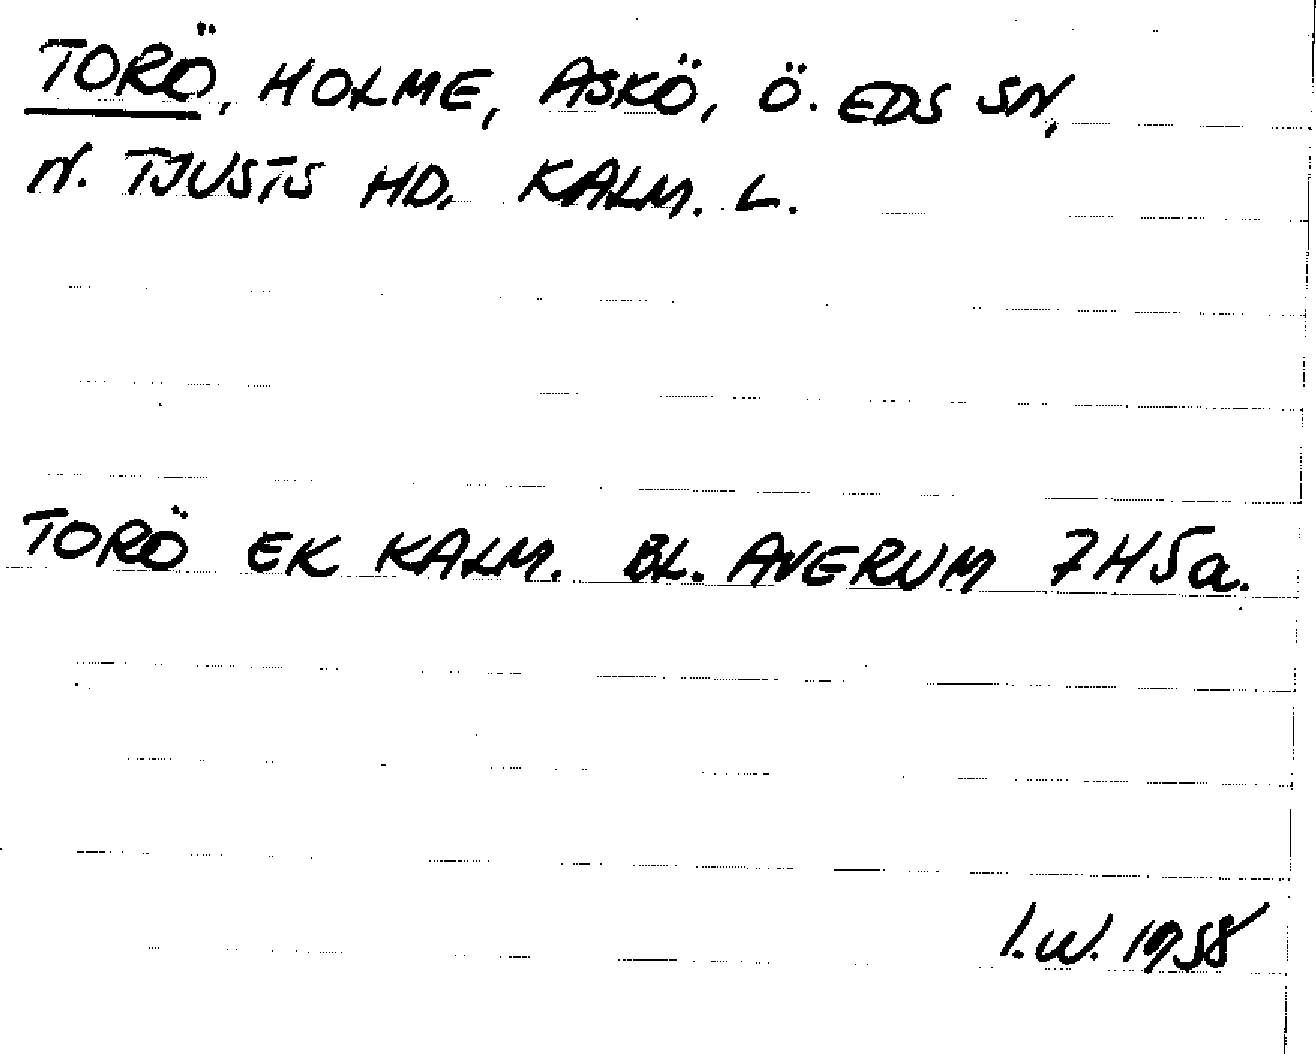 TORÖ, HOLME, ASKÖ, Ö. EDS SN,
N. TJUSTS HD. KALM. L.
TORÖ EK KALM. BL. AVERUM 7H5a.
I.W. 1958